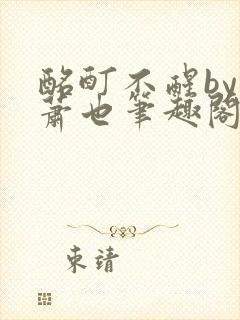 酩酊不醒by
萧也笔趣阁
束靖